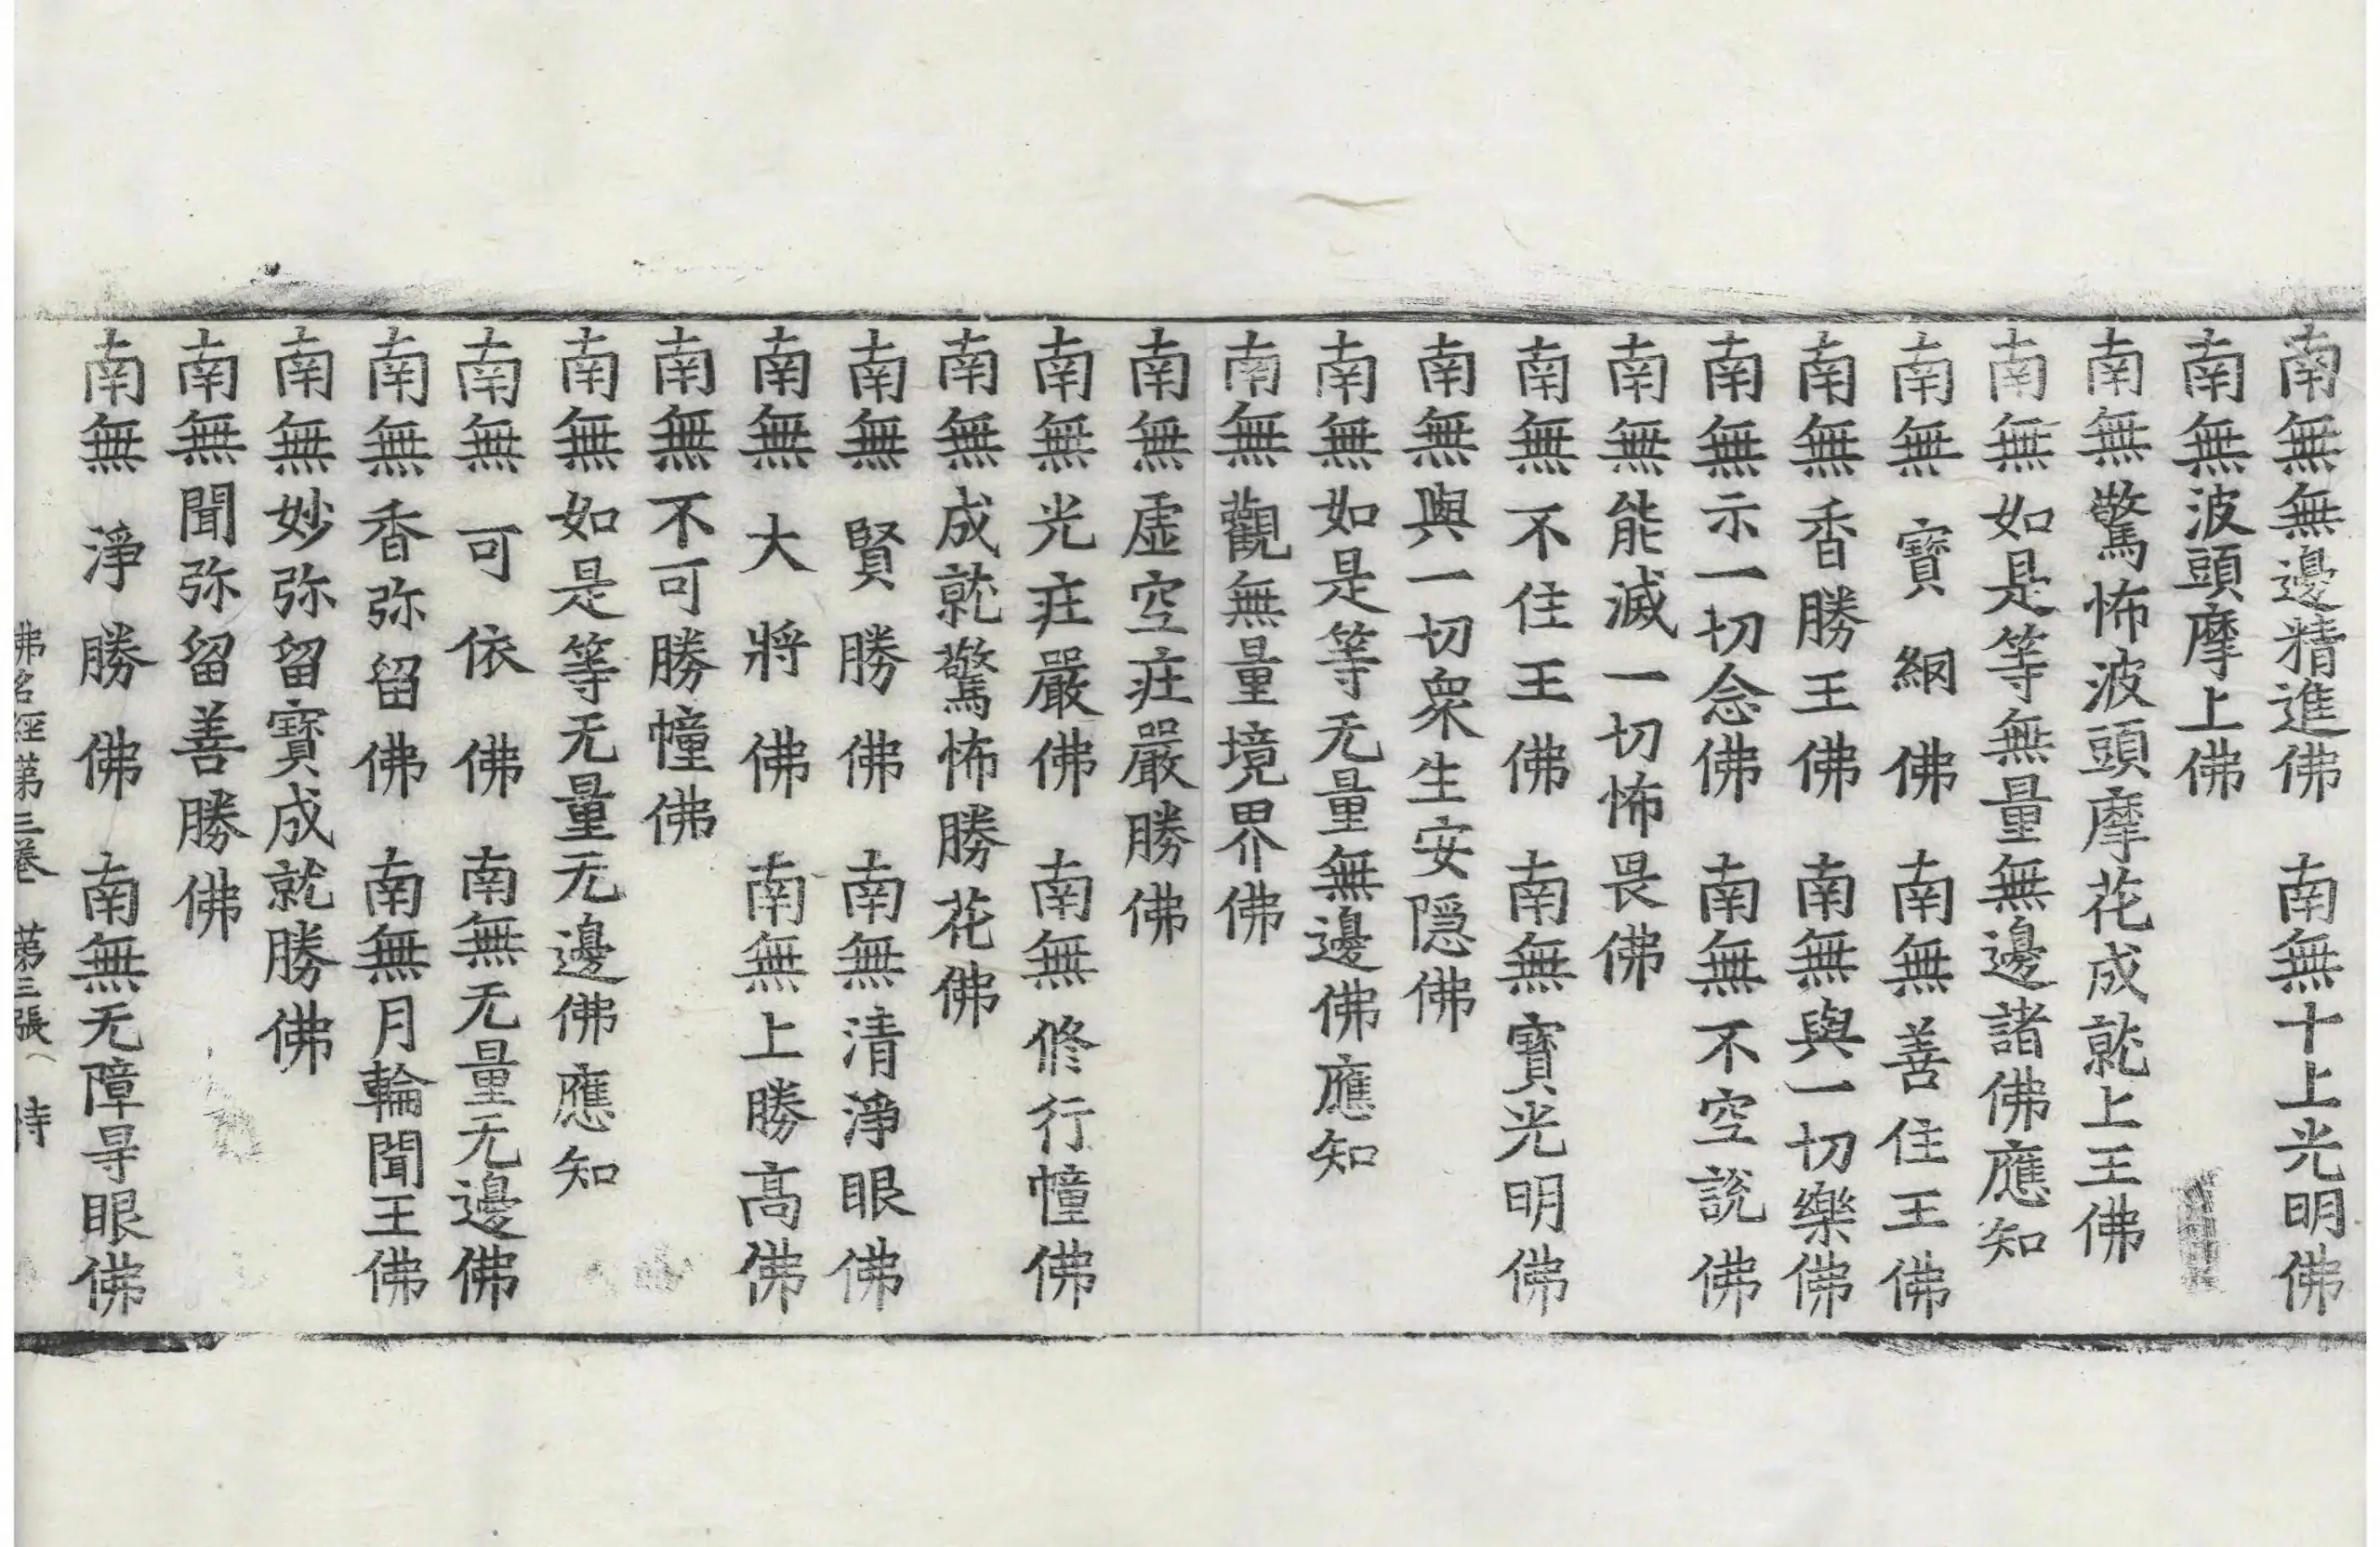 南無無邊精進佛　南無十上光明佛
南無波頭摩上佛
南無驚怖波頭摩花成就上王佛
南無如是等無量無邊諸佛應知
南無寶網佛　南無善住王佛
南無香勝王佛　南無與一切樂佛
南無示一切念佛　南無不空說佛
南無能滅一切怖畏佛
南無不住王佛　南無寶光明佛
南無與一切衆生安隱佛
南無如是等无量無邊佛應知
南無觀無量境界佛
南無虛空疘嚴勝佛
南無光疘嚴佛　南無修行幢佛
南無成就驚怖勝花佛
南無賢勝佛　南無清淨眼佛
南無大將佛　南無上勝高佛
南無不可勝幢佛
南無如是等无量无邊佛應知
南無可依佛　南無无量无邊佛
南無香弥留佛　南無月輪聞王佛
南無妙弥留寶成就勝佛
南無聞弥留善勝佛
南無淨勝佛　南無无障㝵眼佛
佛名經第三卷　第三張　恃